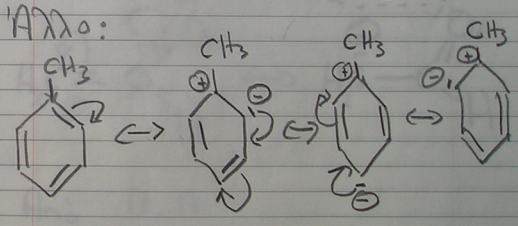 Άλλο:
CH3 CH3 CH3 CH3
⊕ ⊖ ⊕ ⊖ ⊕ ⊖